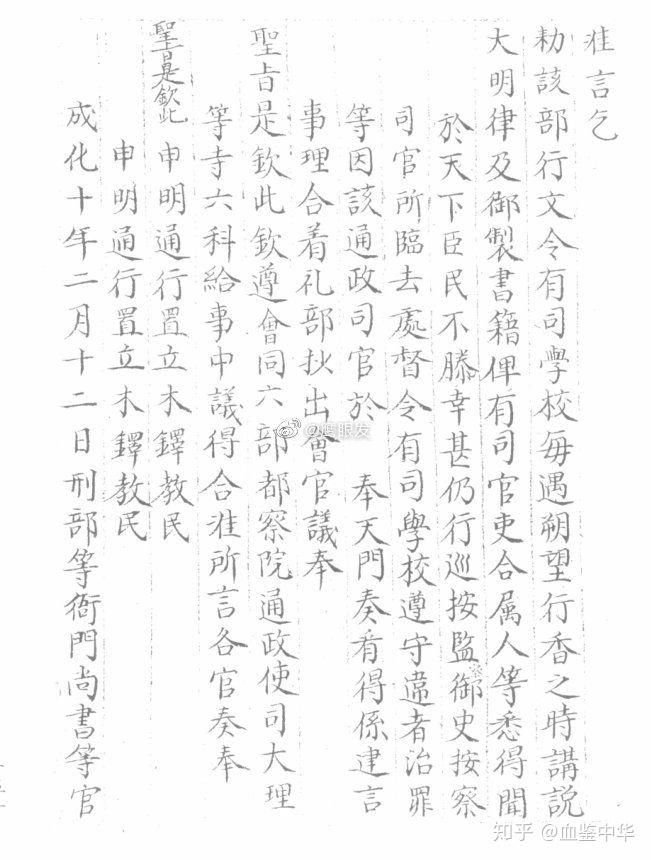 准言乞
勑該部行文令有司學校每遇朔望行香之時講説
大明律及御製書籍俾有司官吏合属人等悉得聞
於天下臣民不勝幸甚仍行巡按監御史按察
司官所臨去處督令有司學校遵守違者治罪
等因該通政司官於 奉天門奏看得係建言
事理合着礼部抄出會官議奉
聖旨是欽此欽遵會同六部都察院通政使司大理
等寺六科給事中議得合准所言各官奏奉
聖旨是欽此 申明通行置立木鐸教民
申明通行置立木鐸教民
成化十年二月十二日刑部等衙門尚書等官
@鹰眼发
知乎 @血鉴中华